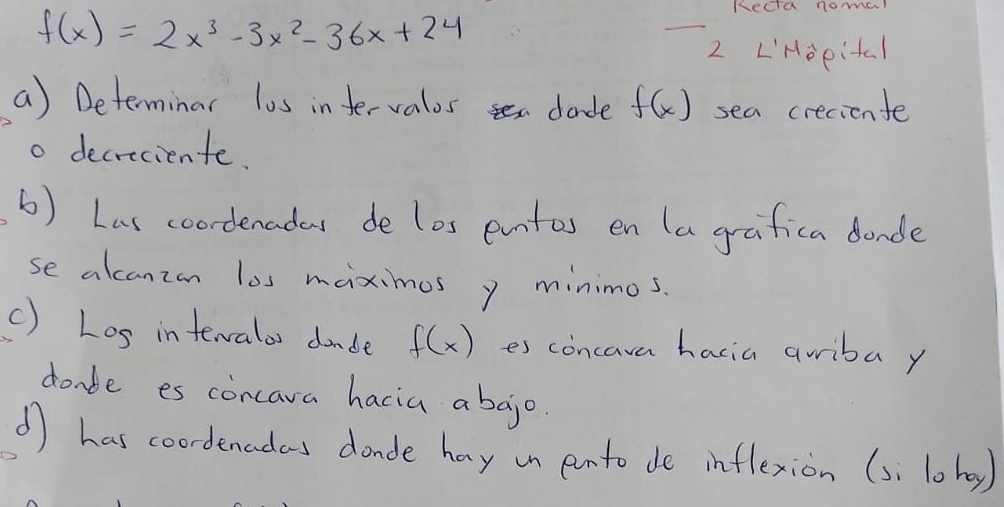 Recta normal
f(x) = 2x³-3x²-36x+24
2 L'Hôpital
a) Determinar los intervalos donde f(x) sea creciente
o decreciente.
b) Las coordenadas de los puntos en la gráfica donde
se alcanzan los máximos y mínimos.
c) Los intervalos donde f(x) es cóncava hacia arriba y
donde es cóncava hacia abajo.
d) Las coordenadas donde hay un punto de inflexión (si lo hay)